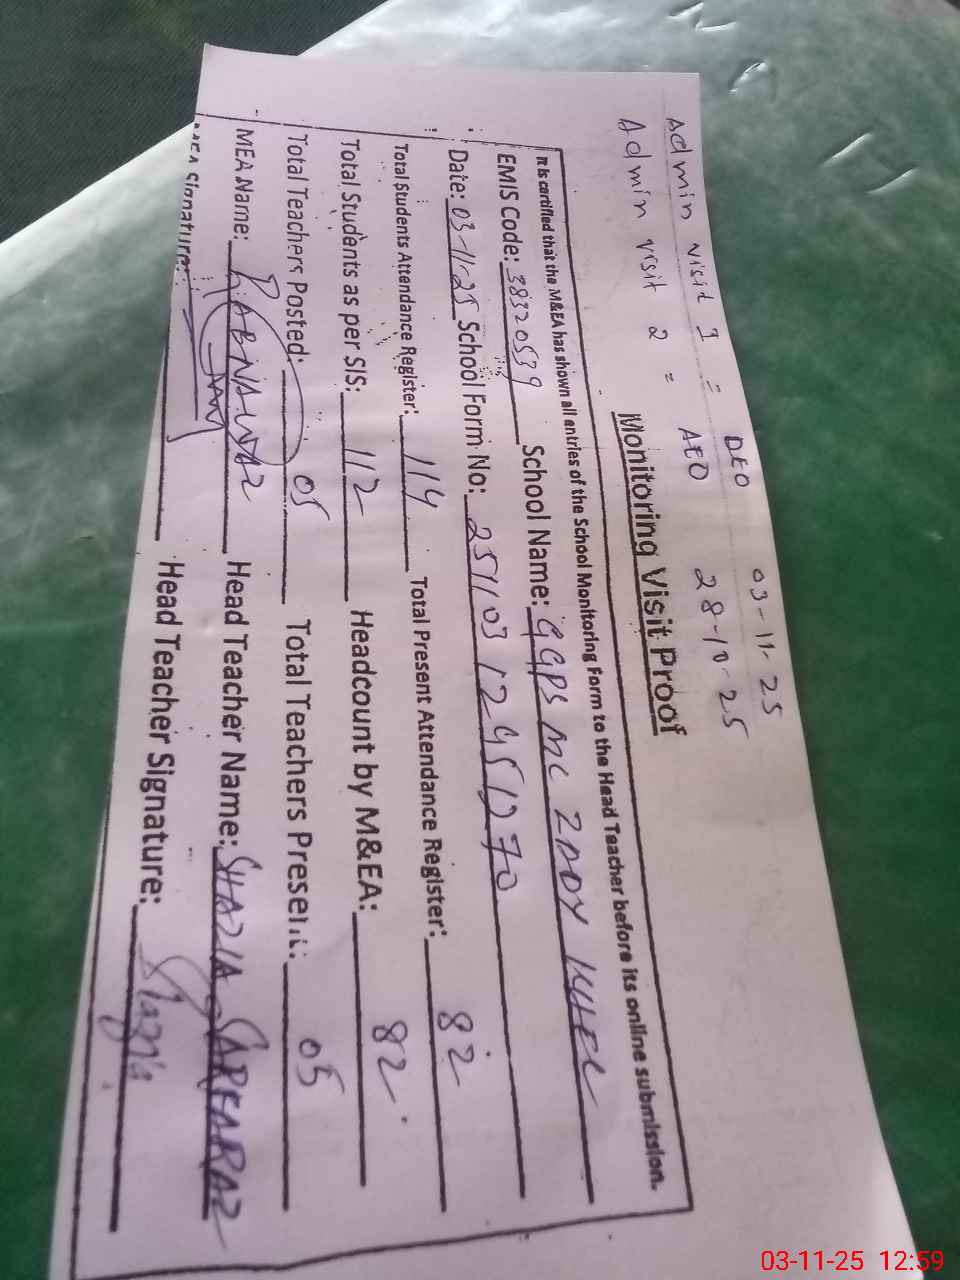 Admin visit 1 = DEO 03-11-25
Admin visit 2 = AEO 28-10-25
Monitoring Visit Proof
It is certified that the M&EA has shown all entries of the School Monitoring Form to the Head Teacher before its online submission.
EMIS Code: 38320539 School Name: GGPS MC
Date: 03-11-25 School Form No:
Total Students Attendance Register: 114 Total Present Attendance Register: 82
Total Students as per SIS: 112 Headcount by M&EA: 82
Total Teachers Posted: 05 Total Teachers Present: 05
MEA Name: RAB NAWAZ Head Teacher Name: SHAZIA SARFARAZ
MEA Signature: Head Teacher Signature: Shazia
03-11-25 12:59